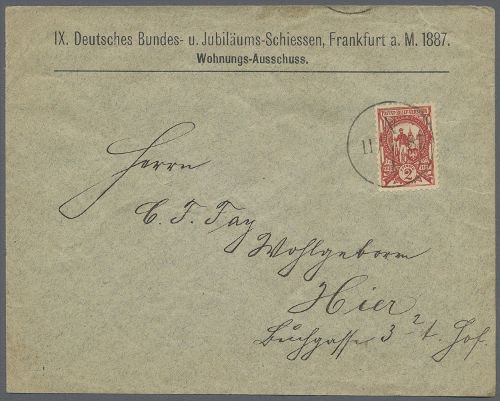 IX. Deutsches Bundes- u. Jubiläums-Schiessen, Frankfurt a. M. 1887.
Wohnungs-Ausschuss.
11
2
Herrn
C. T. Tay
Wohlgeborn
Hier
Buchgasse 3 2 t. Hof.